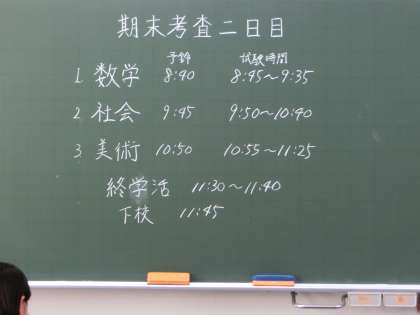 期末考査二日目
予鈴 試験時間
1. 数学 8:40 8:45～9:35
2. 社会 9:45 9:50～10:40
3. 美術 10:50 10:55～11:25
終学活 11:30～11:40
下校 11:45